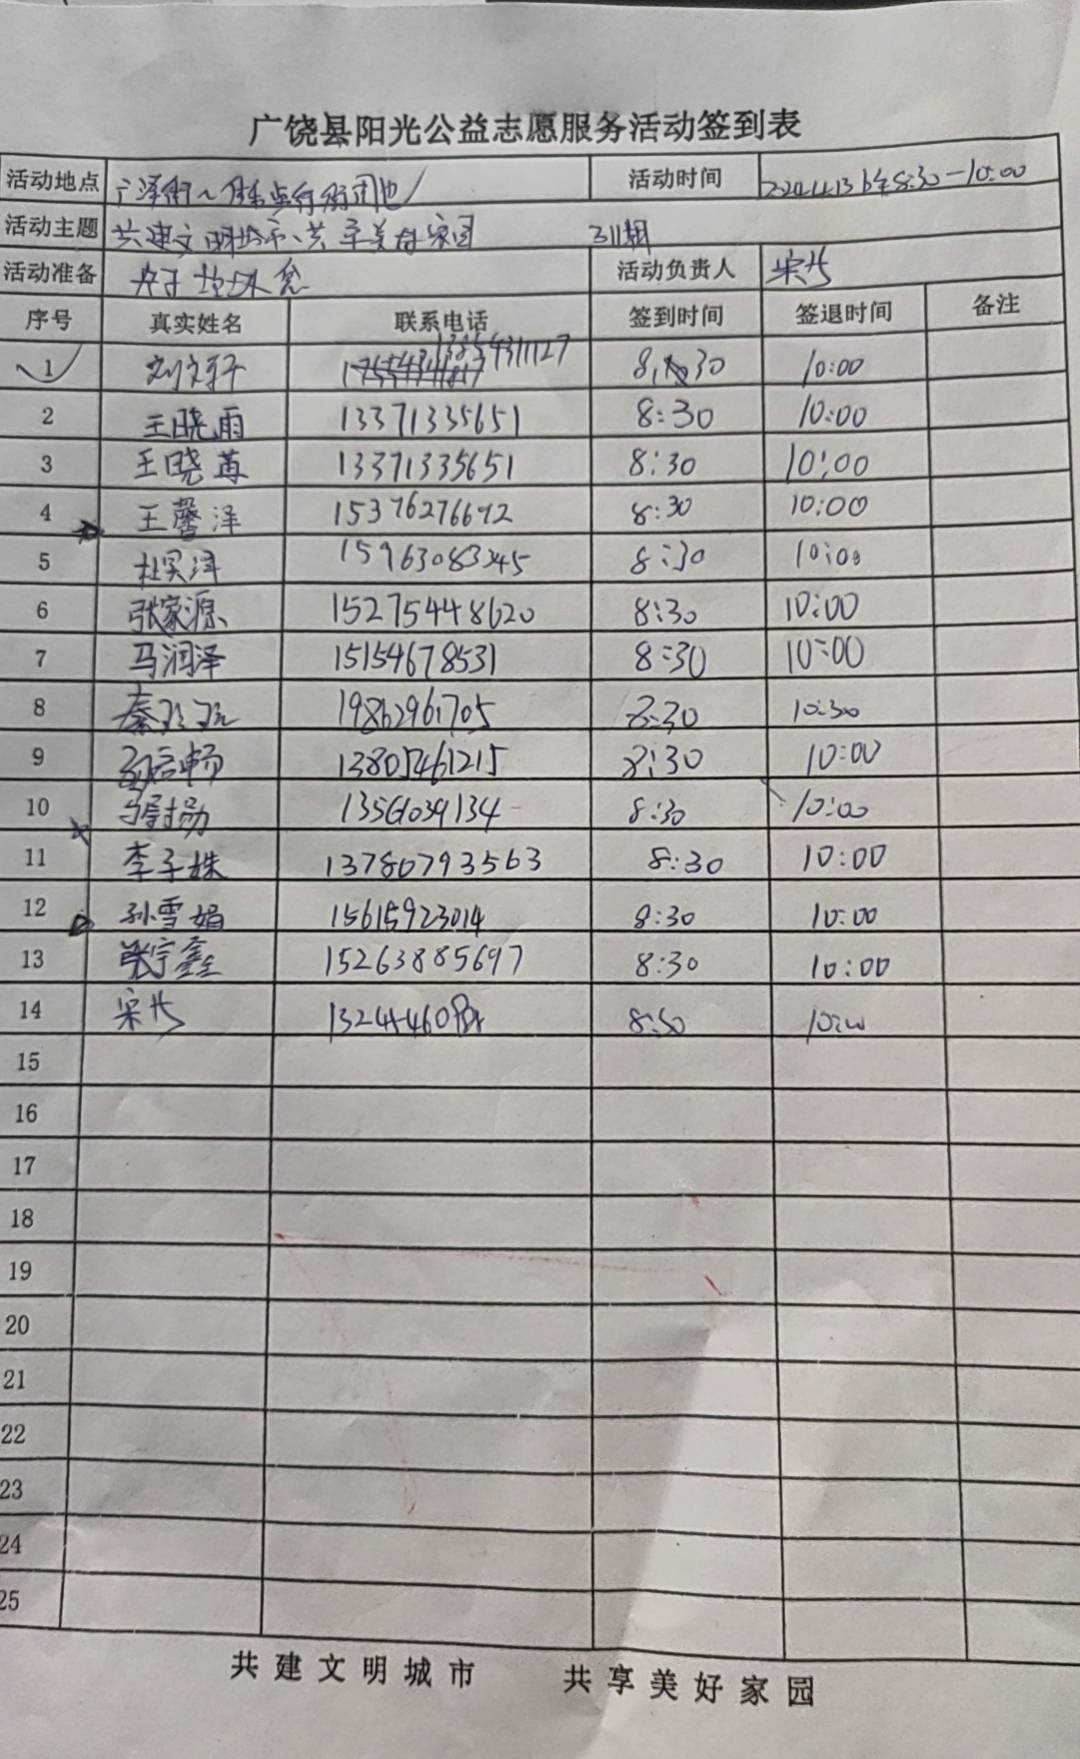 广饶县阳光公益志愿服务活动签到表
活动地点 活动时间 2024.4.13 8:30-10:00
活动主题 共建文明城市、共享美好家园 311期
活动准备 夹子 垃圾袋 活动负责人 宋
序号 真实姓名 联系电话 签到时间 签退时间 备注
1 刘 13354311127 8:30 10:00
2 王晓雨 13371335651 8:30 10:00
3 王晓苒 13371335651 8:30 10:00
4 王馨泽 15376276692 8:30 10:00
5 杜昊泽 15963083245 8:30 10:00
6 张家源 15275448620 8:30 10:00
7 马润泽 15154678531 8:30 10:00
8 秦 19862961705 8:30 10:30
9 13805461215 8:30 10:00
10 13561039134 8:30 10:00
11 李子姝 13780793563 8:30 10:00
12 孙雪娟 15615923014 8:30 10:00
13 张宇鑫 15263885697 8:30 10:00
14 宋 8:30 10:00
15
16
17
18
19
20
21
22
23
24
25
共建文明城市 共享美好家园